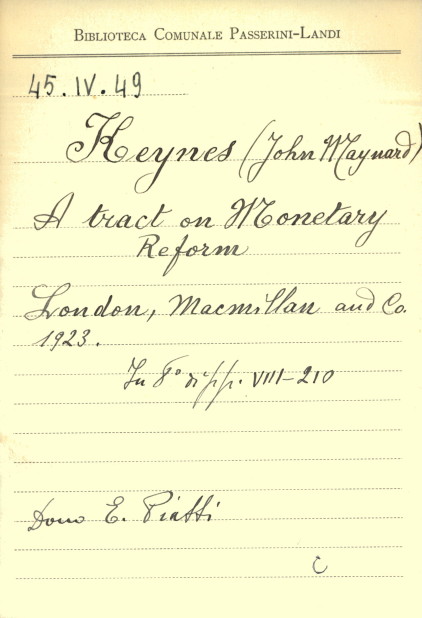 BIBLIOTECA COMUNALE PASSERINI-LANDI
45.IV.49
Keynes (John Maynard)
A tract on Monetary
Reform
London, Macmillan and Co.
1923.
In 8° di pp. VIII-210
Dono E. Piatti
C